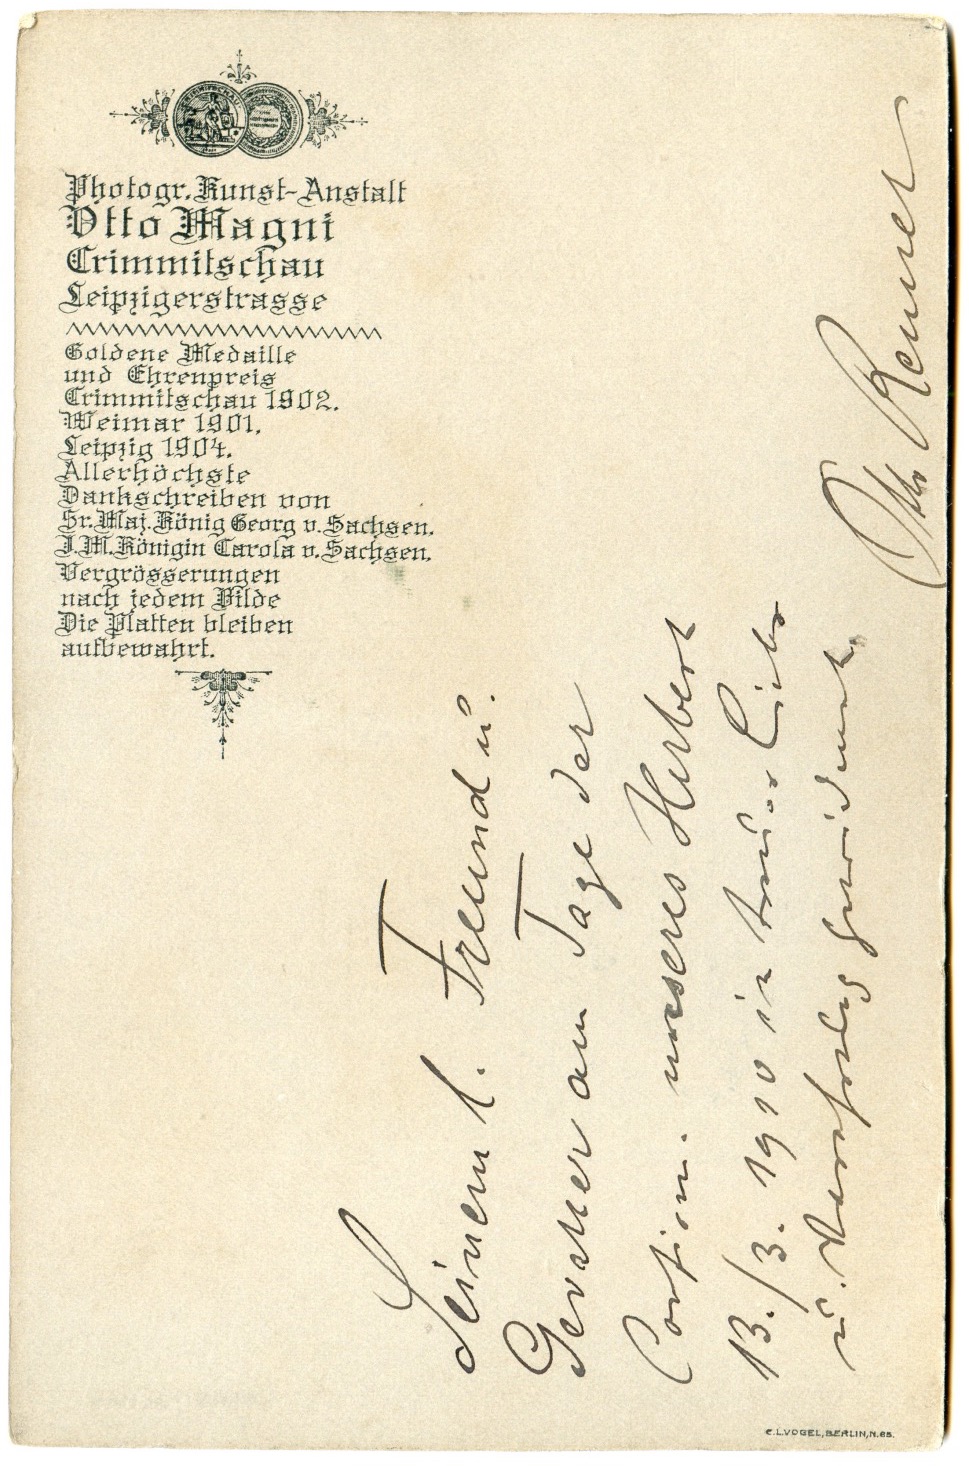 Photogr. Kunst-Anstalt
Otto Magni
Crimmitschau
Leipzigerstrasse
Goldene Medaille
und Ehrenpreis
Crimmitschau 1902.
Weimar 1901.
Leipzig 1904.
Allerhöchste
Dankschreiben von
Sr. Maj. König Georg v. Sachsen.
I. M. Königin Carola v. Sachsen.
Vergrösserungen
nach jedem Bilde
Die Platten bleiben
aufbewahrt.
Seinem l. Freund u.
Gevatter am Tage der
unseres Herbert
13./3. 1910 in treuer Liebe
u. gewidmet.
Otto Renner
C.L.VOGEL, BERLIN, N.65.